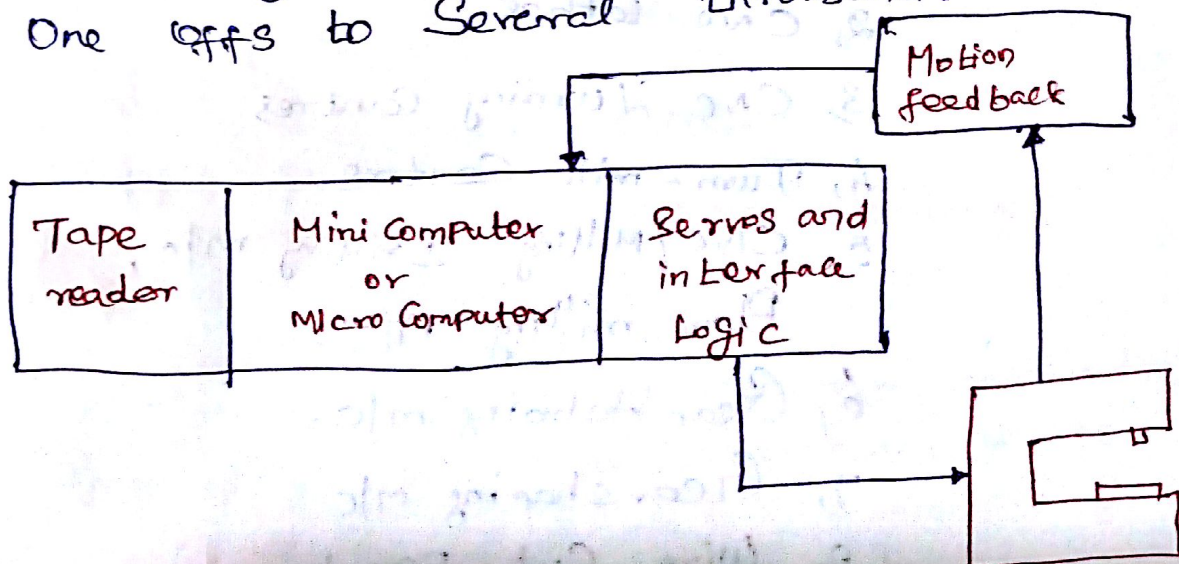 One offs to Several
Motion
feedback
Tape
reader
Mini Computer
or
Micro Computer
Servos and
interface
Logic